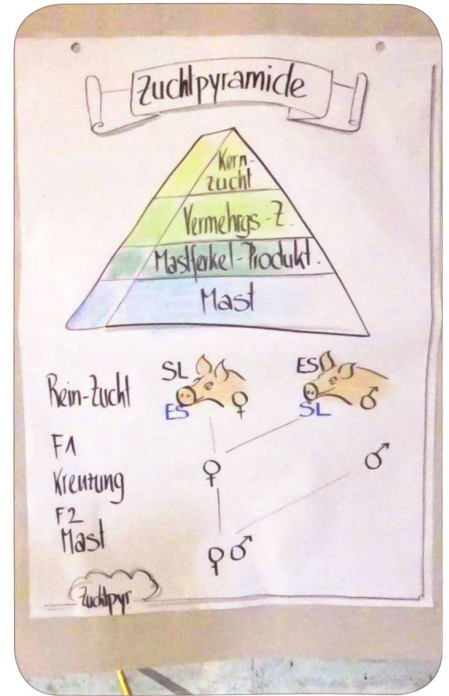 Zuchtpyramide
Kern-
zucht
Vermehrgs-Z.
Mastferkel-Produkt.
Mast
SL
ES
♀
ES
SL
♂
Rein-Zucht
F1
Kreuzung
♀
♂
F2
Mast
♀♂
Zuchtpyr